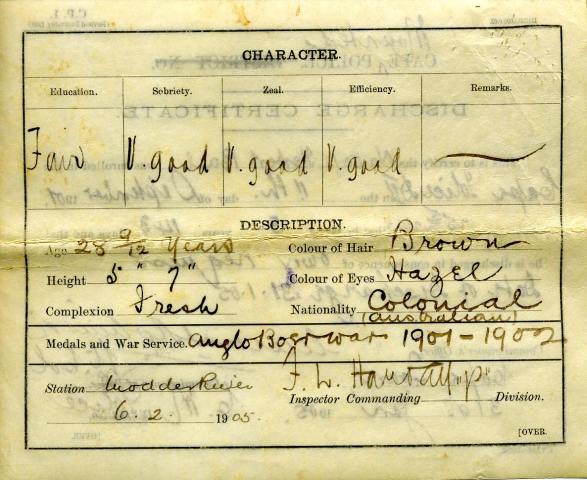 CHARACTER.
Education. Sobriety. Zeal. Efficiency. Remarks.
Fair V. good V. good V. good
DESCRIPTION.
Age 28 9/12 Years Colour of Hair Brown
Height 5 " 7" Colour of Eyes Hazel
Complexion Fresh Nationality Colonial
(Australian)
Medals and War Service. Anglo Boer War 1901-1902
Station Modder River F. W.
6. 2. 1905. Inspector Commanding Division.
[OVER.